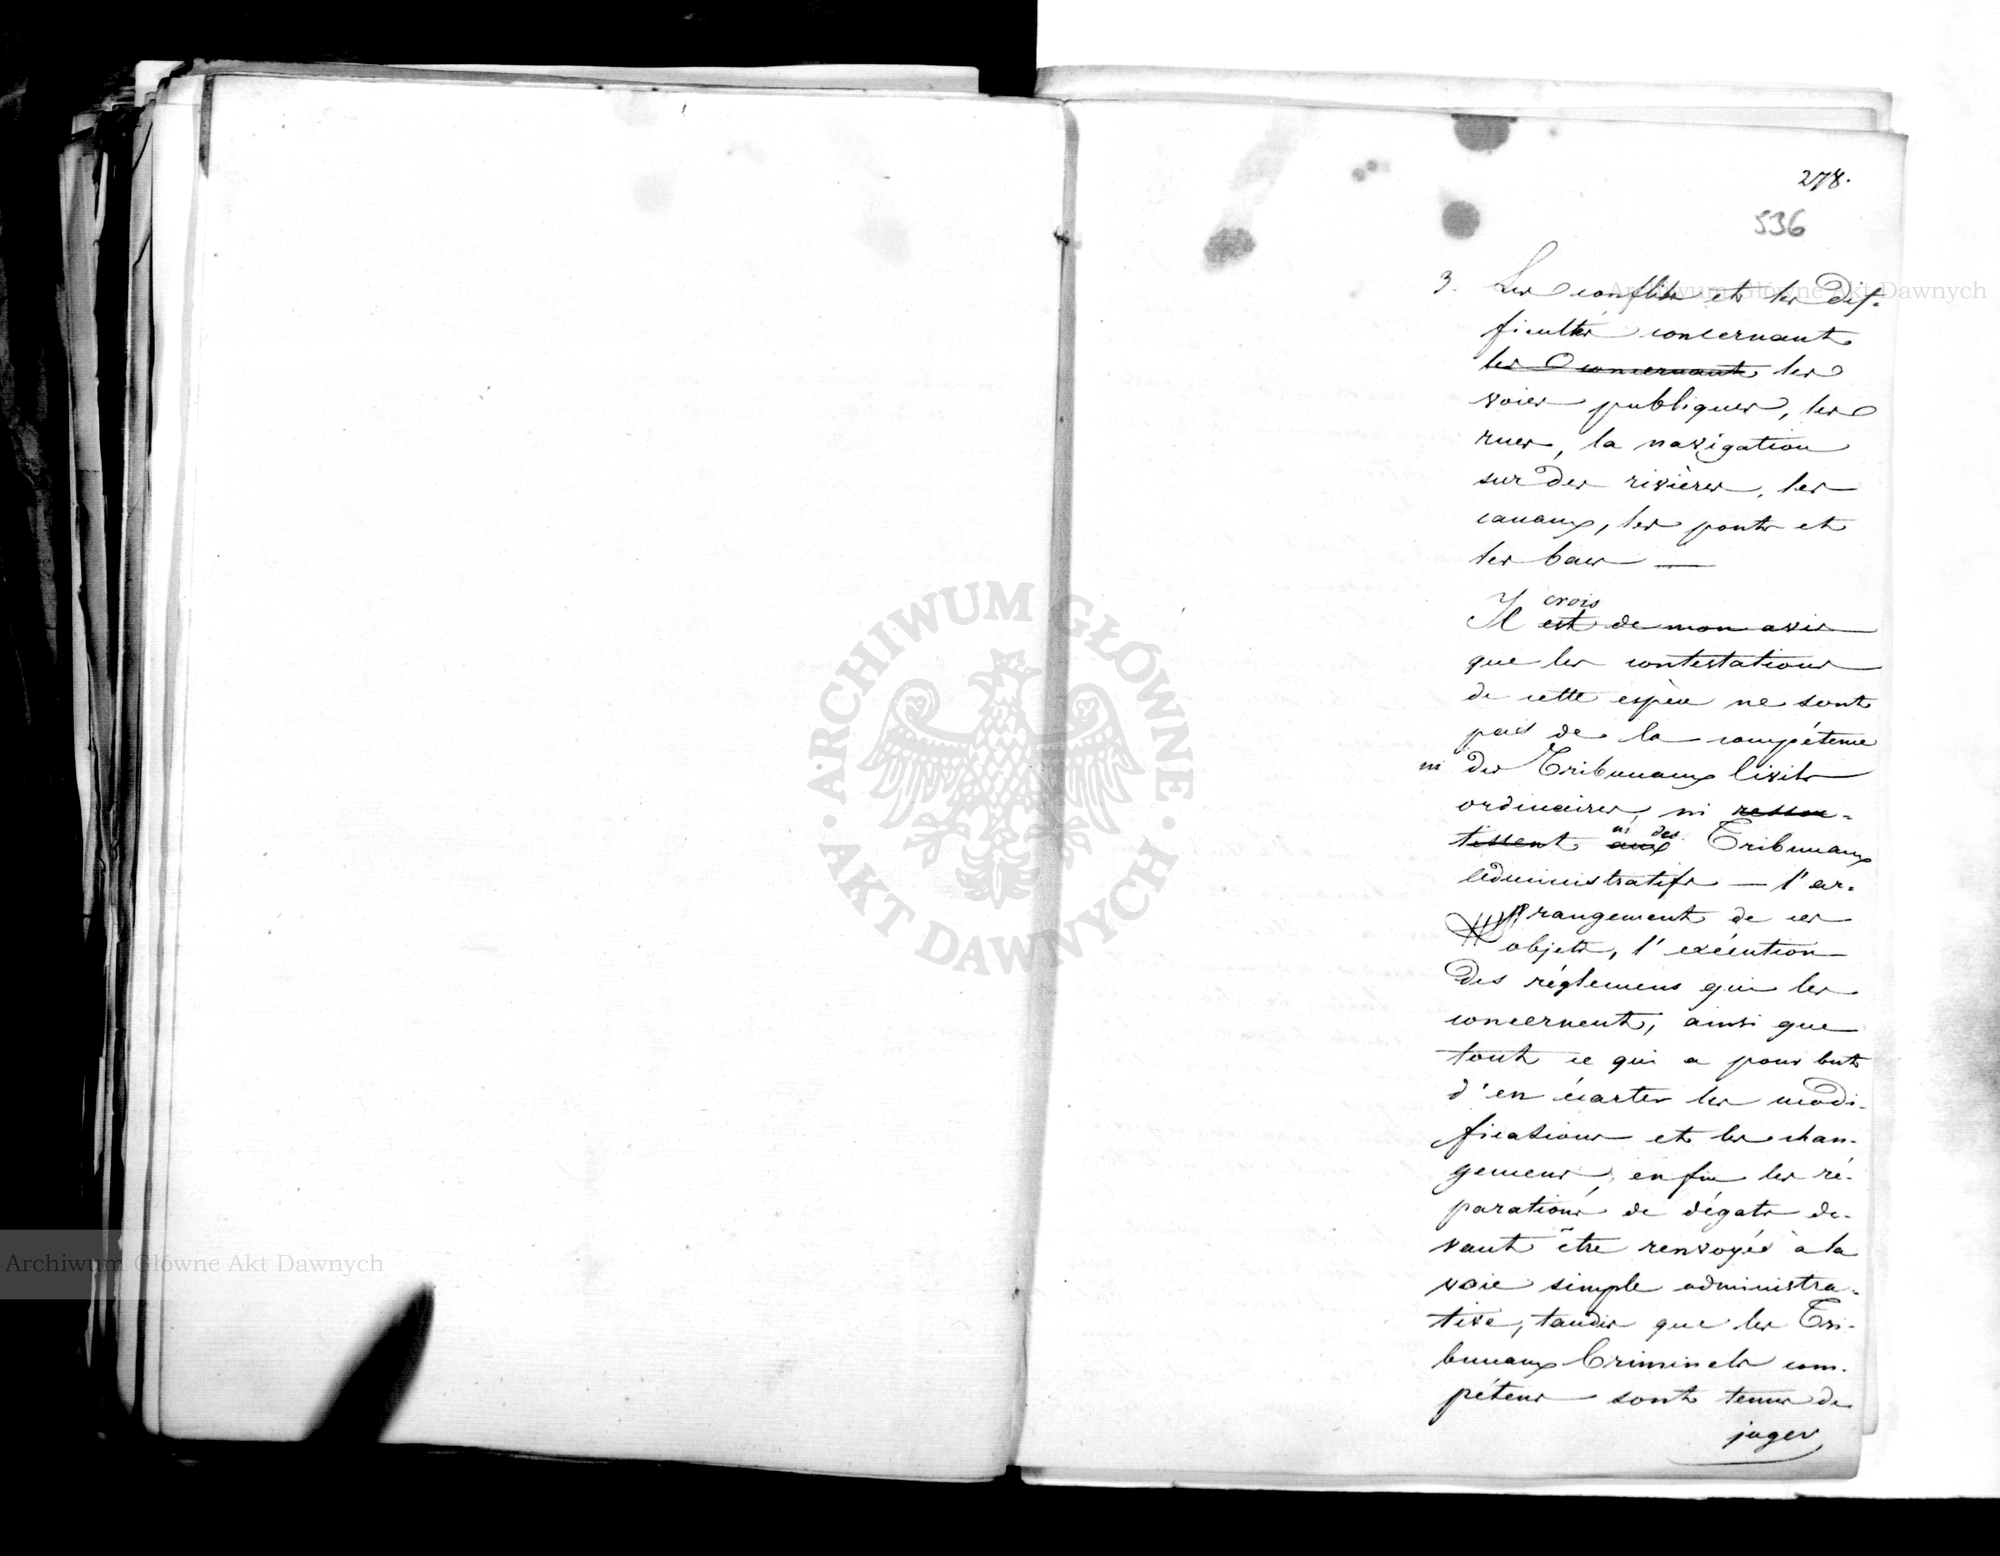 278.
536
3. Les conflits et les dif-
ficultés concernant
les concernant les
voies publiques, les
rues, la navigation
sur des rivières, les
canaux, les ponts et
les bacs —
crois
Il est de mon avis
que les contestations
de cette espèce ne sont
pas de la compétence
ni des Tribunaux Civils
ordinaires, ni ressor-
tissent aux ni des Tribunaux
administratifs — l'ar-
rangement de ces
objets, l'exécution
des réglemens qui les
concernent, ainsi que
tout ce qui a pour but
d'en écarter les modi-
fications et les chan-
gemens, enfin les ré-
parations de dégats de-
vant être renvoyés à la
voie simple administra-
tive, tandis que les Tri-
bunaux Criminels com-
pétens sont tenus de
juger
Archiwum Główne Akt Dawnych
ARCHIWUM GŁÓWNE
AKT DAWNYCH
Archiwum Główne Akt Dawnych